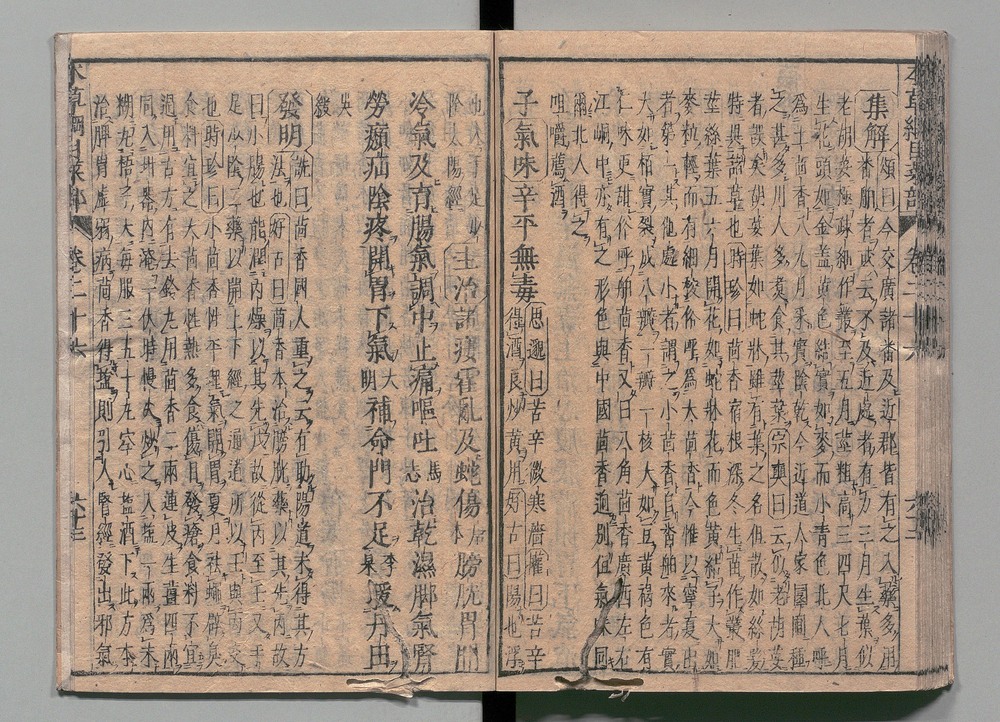 集解頌曰今交廣諸番及近郡皆有之入藥多用
番舶者或云不及近處者有力三月生葉似
老胡荽極疎細作叢至五月莖粗高三四尺七月
生花頭如傘蓋黃色結實如麥而小青色北人呼
爲土茴香八九月采實陰乾今近道人家園圃種
之甚多川人多煮食其莖葉宗奭曰云似老胡荽
者誤矣胡荽葉如蛇牀茴香雖有葉之名但散如絲髮
特異諸草也時珍曰茴香宿根深冬生苗作叢肥
莖絲葉五六月開花如蛇牀花而色黃結子大如
麥粒輕而有細稜俗呼爲大茴香今惟以寧夏出
者第一其他處小者謂之小茴香自番舶來者實
大如柏實裂成八瓣一瓣一核大如豆黃褐色有
仁味更甜俗呼舶茴香又曰八角茴香廣西左右
江峒中亦有之形色與中國茴香迥別但氣味同
爾北人得之
咀嚼薦酒
子氣味辛平無毒思邈曰苦辛微寒澀權曰苦辛
得酒良炒黃用好古曰陽也浮
也入手足少
陰太陽經主治諸瘻霍亂及蛇傷唐本膀胱胃間
冷氣及育腸氣調中止痛嘔吐馬志治乾濕脚氣腎
勞㿗疝陰疼開胃下氣大明補命門不足李杲暖丹田
吳
綬
發明詵曰茴香國人重之云有助陽道未得其方
法也好古曰茴香本治膀胱藥以其先丙故
曰小腸也能潤丙燥以其先戊故從丙至壬又手
足少陰二藥以開上下經之通道所以壬與丙交
也時珍曰小茴香性平理氣開胃夏月祛蠅辟臭
食料宜之大茴香性熱多食傷目發瘡食料不宜
過用古方有去鈴丸用茴香二兩連皮生薑四兩
同入坩器內淹一伏時慢火炒之入鹽一兩爲末
糊丸梧子大每服三五十丸空心鹽酒下此方本
治脾胃虛弱病茴香得鹽則引入腎經發出邪氣